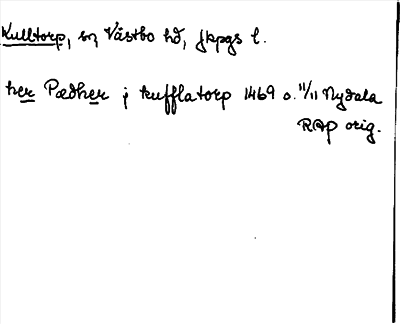 Kulltorp, sn, Västbo hd, Jkpgs l.
her Pædher j kufflatorp 1469 o. 11/11 Nydala
RAp orig.